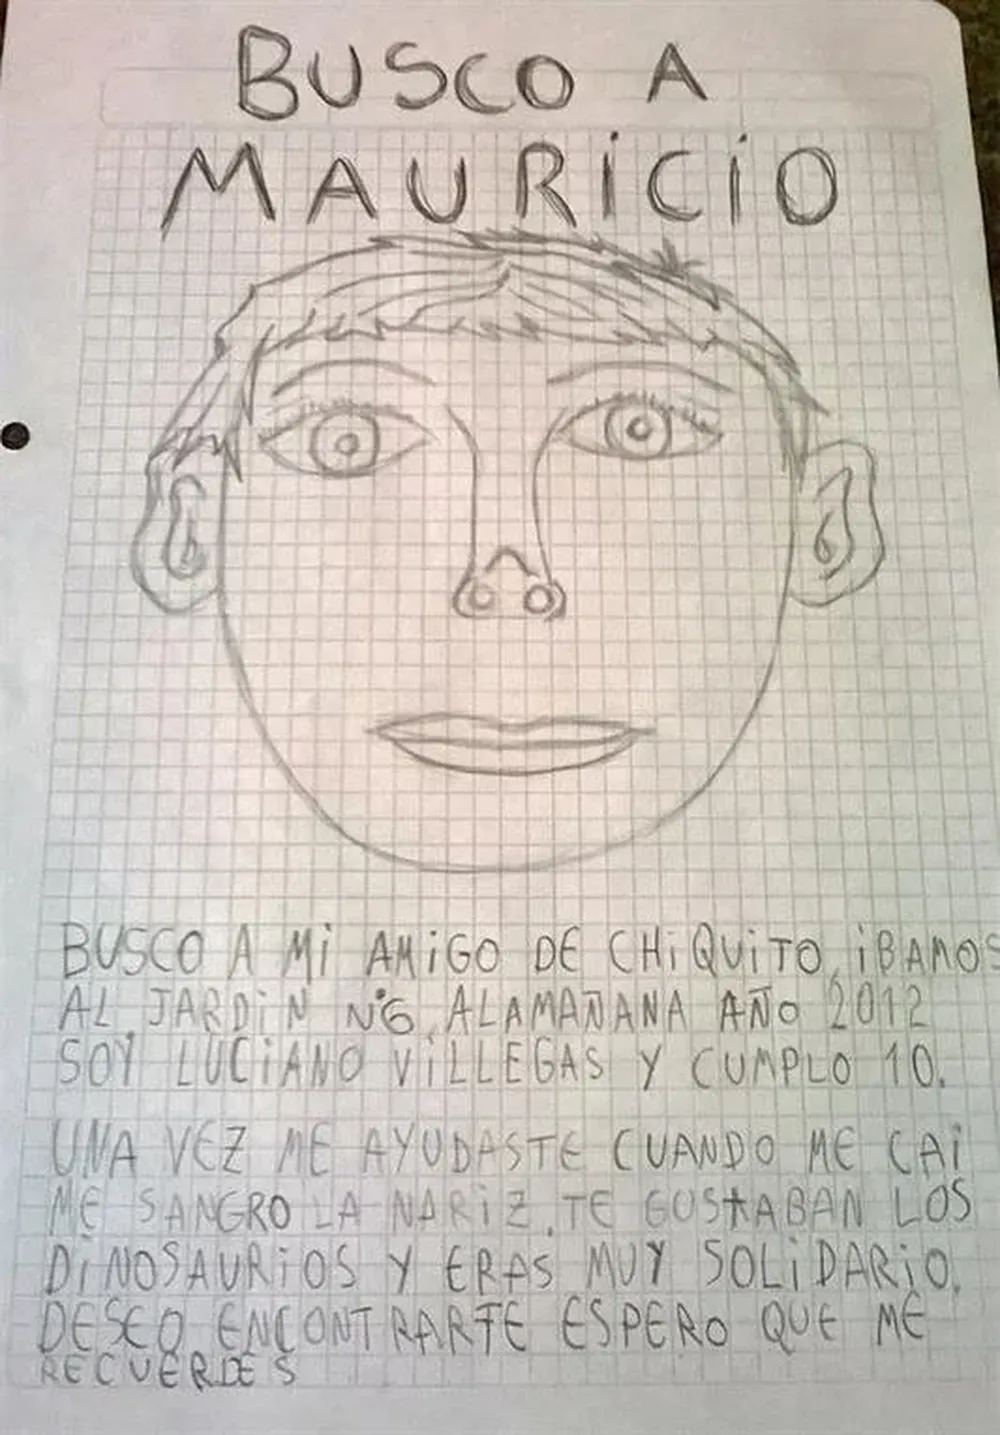 BUSCO A
MAURiCiO
BUSCO A Mi AMiGO DE CHiQUiTO, iBAMOS
AL JARDiN N°6, ALAMAÑANA AÑO 2012
SOY LUCiANO ViLLEGAS Y CUMPLO 10.
UNA VEZ ME AYUDASTE CUANDO ME CAi
ME SANGRO LA NARiZ. TE GUSTABAN LOS
DiNOSAURiOS Y ERAS MUY SOLiDARiO.
DESEO ENCONTRARTE ESPERO QUE ME
RECUERDES